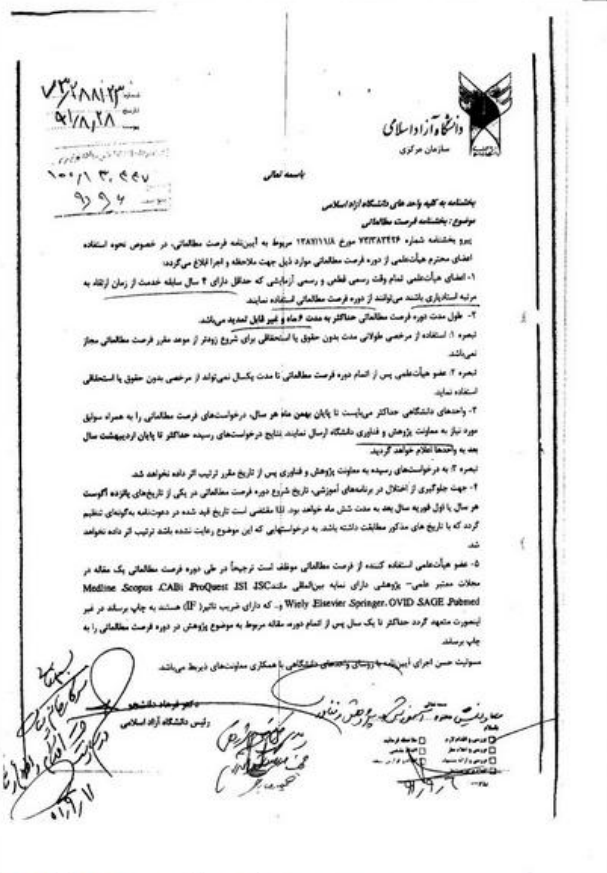 دانشگاه آزاد اسلامی
سازمان مرکزی
باسمه تعالی
بخشنامه به کلیه واحد های دانشگاه آزاد اسلامی
موضوع: بخشنامه فرصت مطالعاتی
پیرو بخشنامه شماره ۷۳/۳۸۳۴۲۶ مورخ ۱۳۸۷/۱۱/۸ مربوط به آیین‌نامه فرصت مطالعاتی، در خصوص نحوه استفاده
اعضای محترم هیأت‌علمی از دوره فرصت مطالعاتی موارد ذیل جهت ملاحظه و اجرا ابلاغ می‌گردد:
۱- اعضای هیأت‌علمی تمام وقت رسمی قطعی و رسمی آزمایشی که حداقل دارای ۴ سال سابقه خدمت از زمان ارتقاء به
مرتبه استادیاری باشند می‌توانند از دوره فرصت مطالعاتی استفاده نمایند.
۲- طول مدت دوره فرصت مطالعاتی حداکثر به مدت ۶ ماه و غیر قابل تمدید می‌باشد.
تبصره ۱: استفاده از مرخصی طولانی مدت بدون حقوق یا استحقاقی برای شروع زودتر از موعد مقرر فرصت مطالعاتی مجاز
نمی‌باشد.
تبصره ۲: عضو هیأت‌علمی پس از اتمام دوره فرصت مطالعاتی تا مدت یکسال نمی‌تواند از مرخصی بدون حقوق یا استحقاقی
استفاده نماید.
۳- واحدهای دانشگاهی حداکثر می‌بایست تا پایان بهمن ماه هر سال، درخواست‌های فرصت مطالعاتی را به همراه سوابق
مورد نیاز به معاونت پژوهش و فناوری دانشگاه ارسال نمایند. نتایج درخواست‌های رسیده حداکثر تا پایان اردیبهشت سال
بعد به واحدها اعلام خواهد گردید.
تبصره ۳: به درخواست‌های رسیده به معاونت پژوهش و فناوری پس از تاریخ مقرر ترتیب اثر داده نخواهد شد.
۴- جهت جلوگیری از اختلال در برنامه‌های آموزشی، تاریخ شروع دوره فرصت مطالعاتی در یکی از تاریخ‌های پانزده آگوست
هر سال یا اول فوریه سال بعد به مدت شش ماه خواهد بود. لذا مقتضی است تاریخ قید شده در دعوت‌نامه به‌گونه‌ای تنظیم
گردد که با تاریخ های مذکور مطابقت داشته باشد. به درخواستهایی که این موضوع رعایت نشده باشد ترتیب اثر داده نخواهد
شد.
۵- عضو هیأت‌علمی استفاده کننده از فرصت مطالعاتی موظف است ترجیحاً در طی دوره فرصت مطالعاتی یک مقاله در
مجلات معتبر علمی- پژوهشی دارای نمایه بین‌المللی مانند Medline ,Scopus ,CABi ,ProQuest ,ISI ,ISC
Wiely ,Elsevier ,Springer, OVID ,SAGE ,Pubmed و... که دارای ضریب تاثیر( IF) هستند به چاپ برساند در غیر
اینصورت متعهد گردد حداکثر تا یک سال پس از اتمام دوره، مقاله مربوط به موضوع پژوهش در دوره فرصت مطالعاتی را به
چاپ برساند.
مسولیت حسن اجرای آیین‌نامه با روسای واحدهای دانشگاهی با همکاری معاونت‌های ذیربط می‌باشد.
دکتر فرهاد دانشجو
رئیس دانشگاه آزاد اسلامی